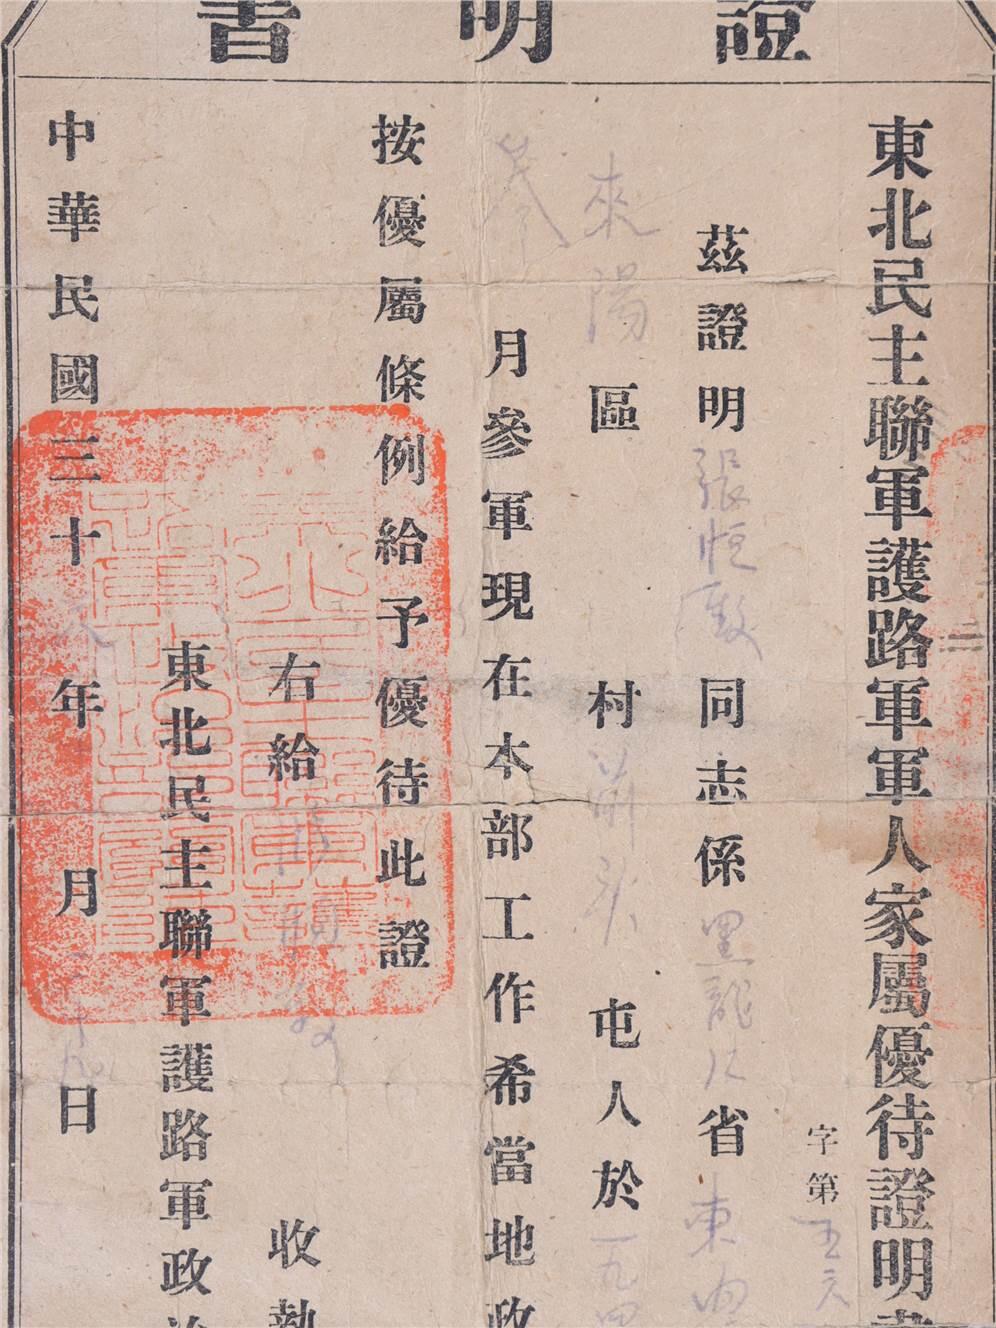 證明書
東北民主聯軍護路軍軍人家屬優待證明書
字第
茲證明張恒敏同志係黑龍江省
來陽區村前屯人於一九四
月參軍現在本部工作希當地政
按優屬條例給予優待此證
右給收執
東北民主聯軍護路軍政治
中華民國三十年月日